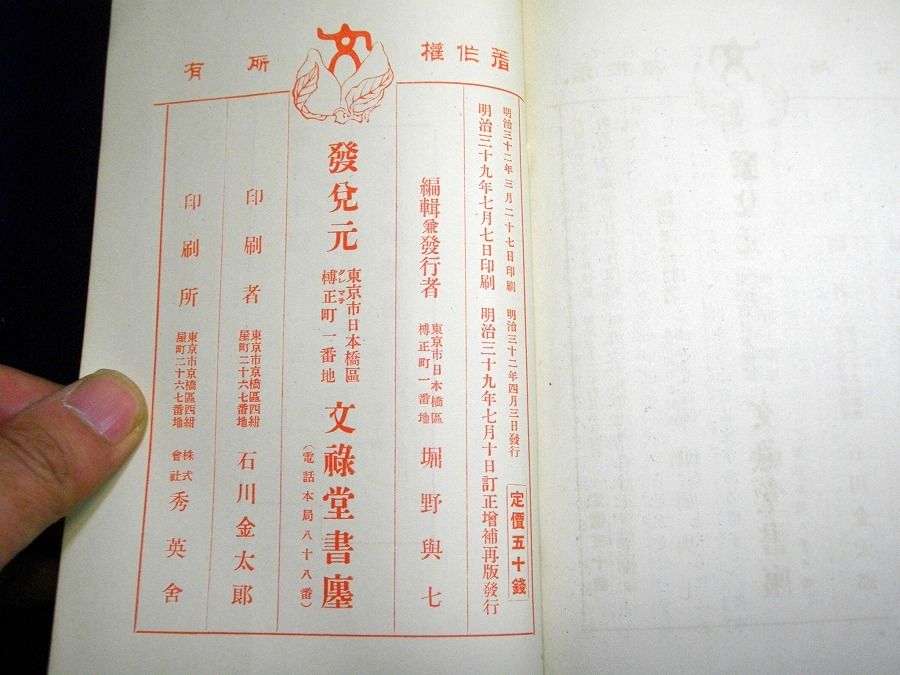 著作權 文 所有
明治三十二年三月二十七日印刷 明治三十二年四月三日發行
明治三十九年七月七日印刷 明治三十九年七月十日訂正增補再版發行
定價五十錢
編輯兼發行者
東京市日本橋區
榑正町一番地
堀野與七
發兌元
東京市日本橋區
榑正町一番地
クレマサ
文祿堂書店
(電話本局八十八番)
印刷者
東京市京橋區西紺
屋町二十六七番地
石川金太郎
印刷所
東京市京橋區西紺
屋町二十六七番地
株式
會社
秀英舍